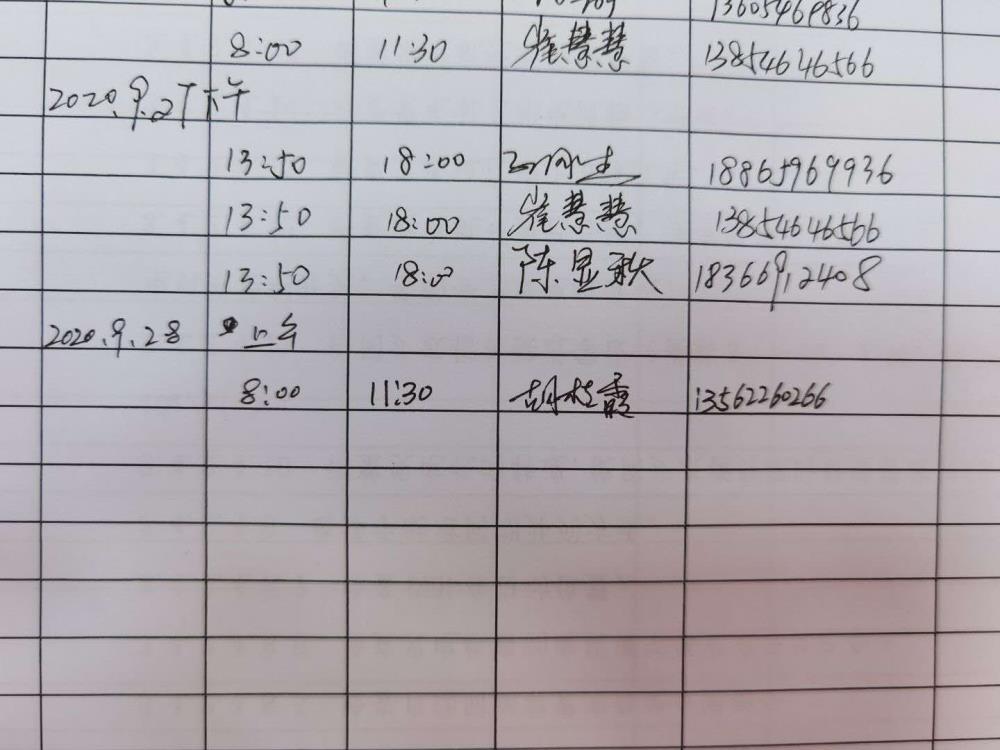 13605469836
8:00 11:30 崔慧慧 13854646566
2020.9.27下午
13:50 18:00 18865969936
13:50 18:00 崔慧慧 13854646566
13:50 18:00 陈显耿 18366912408
2020.9.28 上午
8:00 11:30 胡桂霞 13562260266